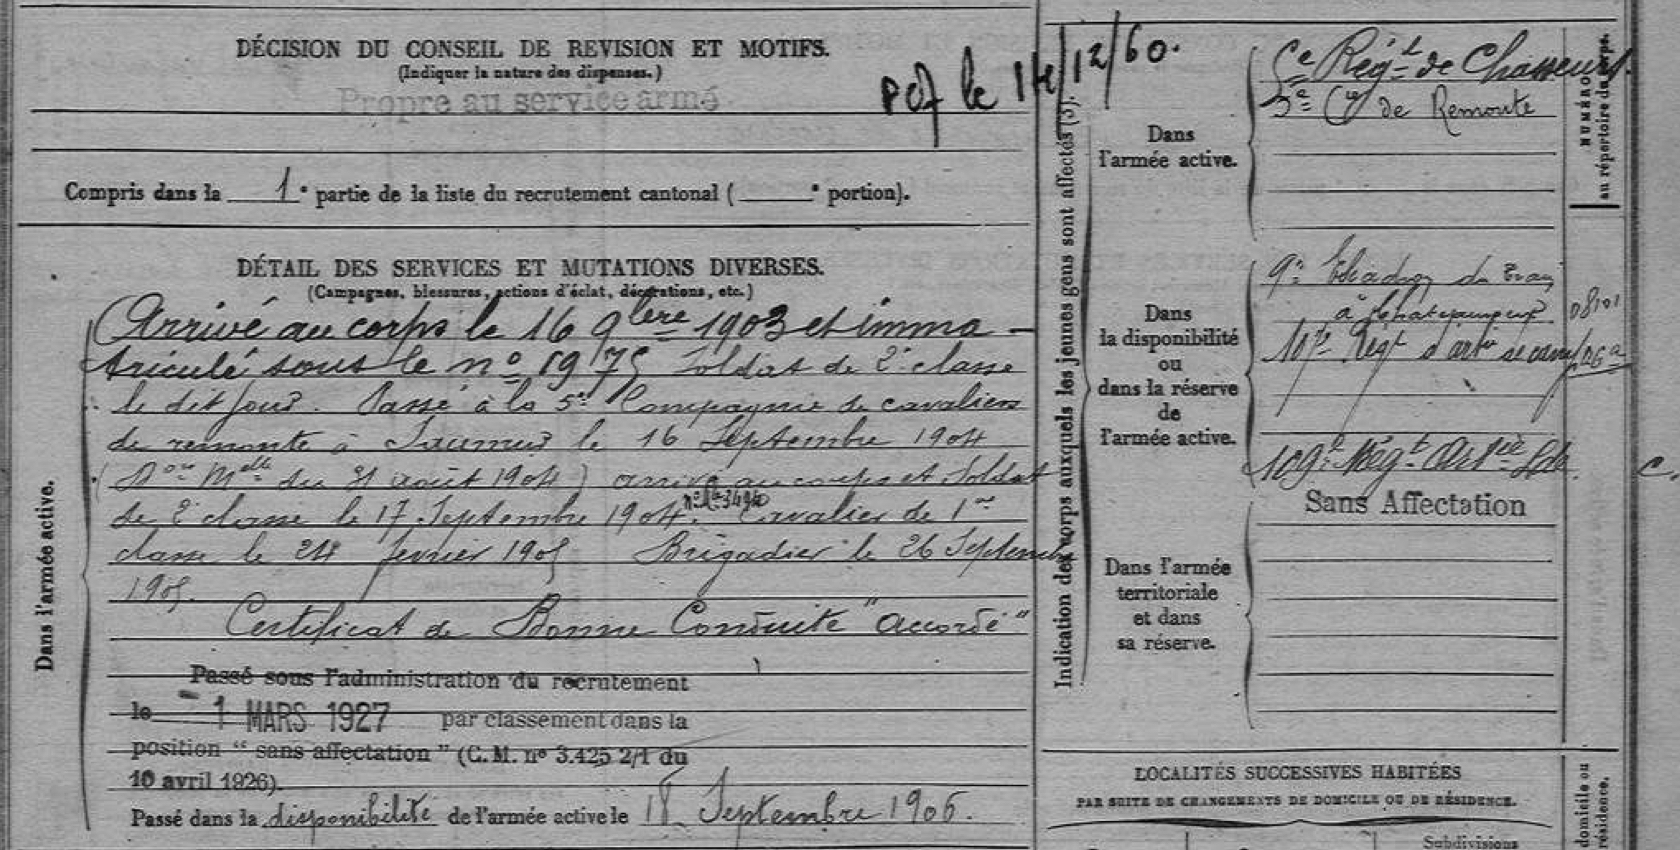 DÉCISION DU CONSEIL DE REVISION ET MOTIFS.
(Indiquer la nature des dispenses.)
Propre au service armé
le 14/12/60.
Compris dans la 1e partie de la liste du recrutement cantonal ( e portion).
DÉTAIL DES SERVICES ET MUTATIONS DIVERSES.
(Campagnes, blessures, actions d'éclat, décorations, etc.)
Dans l'armée active.
Arrivé au corps le 16 9bere 1903 et imma-
triculé sous le no 1975 Soldat de 2e classe
le dit jour. Passé à la 5e Compagnie de cavaliers
de remonte à Saumur le 16 Septembre 1904
(Don Melle du 31 août 1904) arrivé au corps et Soldat
de 2e classe le 17 Septembre 1904. no Mle 3494 Cavalier de 1re
classe le 24 février 1905 Brigadier le 26 Septembre
1905.
Certificat de Bonne Conduite "accordé"
Passé sous l'administration du recrutement
le - 1 MARS 1927 par classement dans la
position "sans affectation" (C.M. no 3.425 2/1 du
10 avril 1926).
Passé dans la disponibilité de l'armée active le 18 Septembre 1906.
Indication des corps auxquels les jeunes gens sont affectés (3).
Dans
l'armée active.
Régt de Chasseurs.
5e Cie de Remonte
NUMÉRO
au répertoire du corps.
Dans
la disponibilité
ou
dans la réserve
de
l'armée active.
9e Escadron du Train
à Chateauroux
Régt d'artie de camp
109e Régt Artrie Lde.
Sans Affectation
Dans l'armée
territoriale
et dans
sa réserve.
LOCALITÉS SUCCESSIVES HABITÉES
PAR SUITE DE CHANGEMENTS DE DOMICILE OU DE RÉSIDENCE.
Subdivisions
domicile ou
résidence.